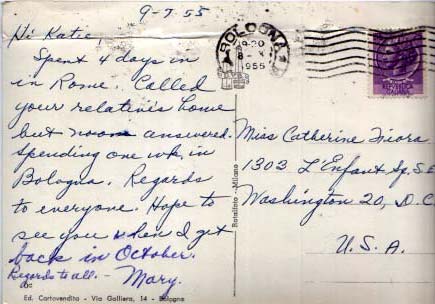 9-7-55
Hi Katie,
Spent 4 days in
in Rome. Called
your relative's home
but no one answered.
Spending one wk. in
Bologna. Regards
to everyone. Hope to
see you when I get
back in October.
Regards to all. -
Mary.
Ed. Cartovendita - Via Galliera, 14 - Bologna
BOLOGNA
19-20
1955
REPVBBLICA
ITALIANA
Miss Catherine Fiora
1303 L'Enfant Sq. S.E.
Washington 20, D.C.
U.S.A.